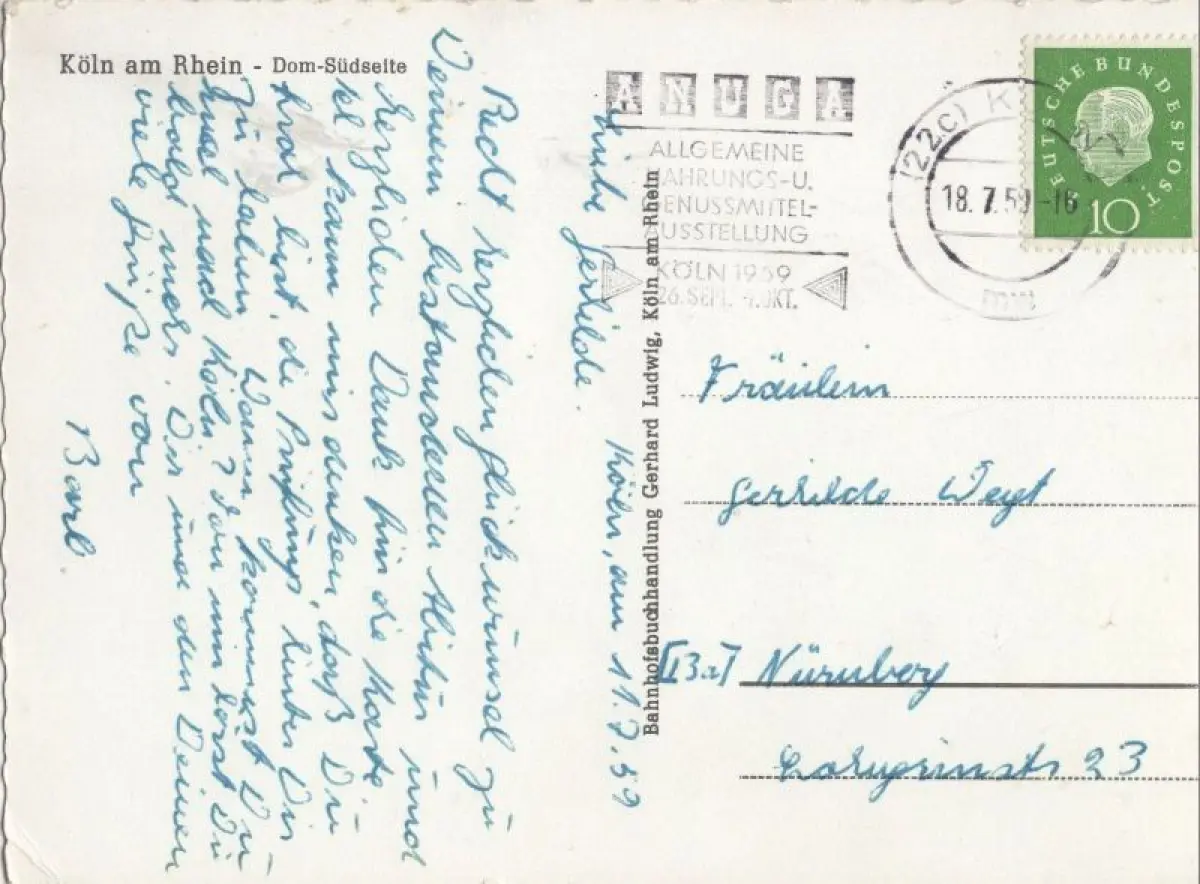 Köln am Rhein - Dom-Südseite
ANUGA
ALLGEMEINE
NAHRUNGS-U.
GENUSSMITTEL-
AUSSTELLUNG
KÖLN 1959
26. SEPT. 4. OKT.
(22c) K
18. 7. 59-16
mw
DEUTSCHE BUNDESPOST
10
Bahnhofsbuchhandlung Gerhard Ludwig, Köln am Rhein
Köln, am 17.7.59
Gerhilde.
Recht herzlichen Glückwunsch zu
Deinem bestandenen Abitur und
herzlichen Dank für die Karte.
kann mir denken, daß Du
hast, die Prüfung hinter Dir
zu haben. Wann kommst Du
mal nach Köln?
bald mehr. Dir und den Deinen
viele Grüße von
Barb.
Fräulein
Gerhilde Weyt
(13a) Nürnberg
23